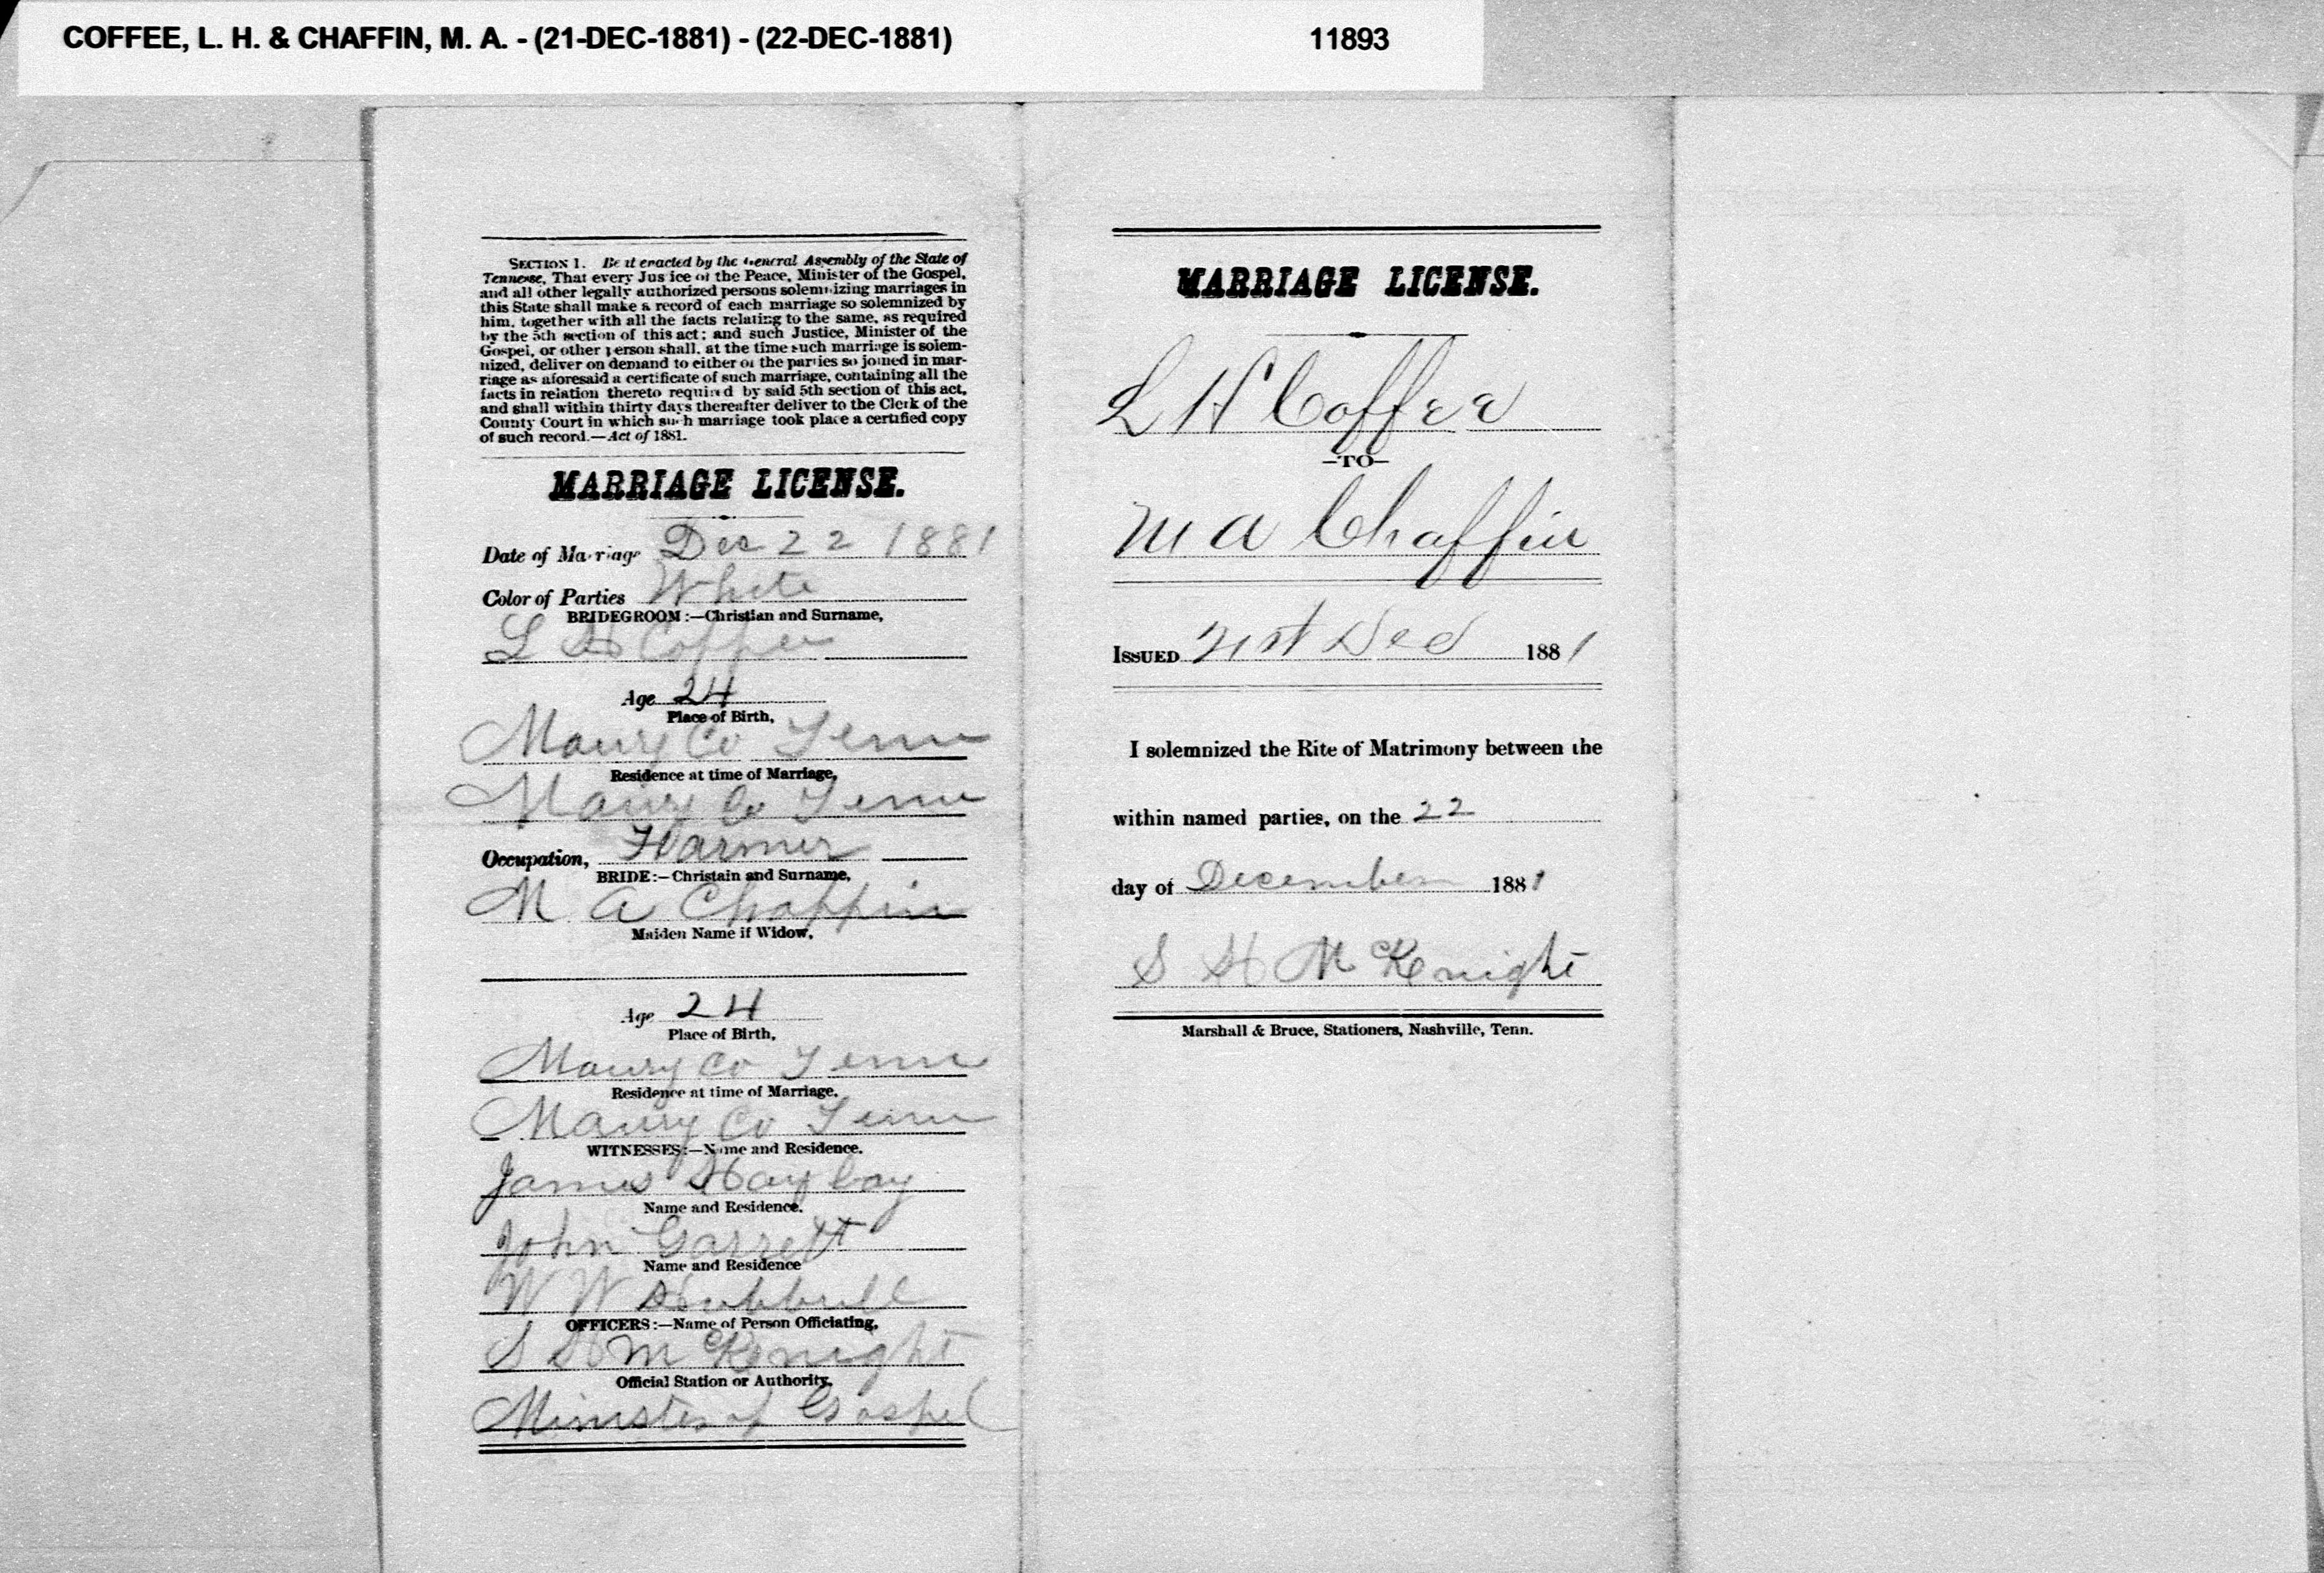 COFFEE, L. H. & CHAFFIN, M. A. - (21-DEC-1881) - (22-DEC-1881) 11893
SECTION 1. Be it enacted by the General Assembly of the State of
Tennesse, That every Jus ice of the Peace, Minister of the Gospel,
and all other legally authorized persons solemnizing marriages in
this State shall make a record of each marriage so solemnized by
him, together with all the facts relating to the same, as required
by the 5th section of this act; and such Justice, Minister of the
Gospel, or other person shall, at the time such marriage is solem-
nized, deliver on demand to either of the parties so joined in mar-
riage as aforesaid a certificate of such marriage, containing all the
facts in relation thereto required by said 5th section of this act,
and shall within thirty days thereafter deliver to the Clerk of the
County Court in which such marriage took place a certified copy
of such record.—Act of 1881.
MARRIAGE LICENSE.
Date of Marriage Dec 22 1881
Color of Parties White
BRIDEGROOM:—Christian and Surname,
L H Coffee
Age 24
Place of Birth,
Maury Co Tenn
Residence at time of Marriage,
Maury Co Tenn
Occupation, Farmer
BRIDE:—Christain and Surname,
M A Chaffin
Maiden Name if Widow,
Age 24
Place of Birth,
Maury Co Tenn
Residence at time of Marriage,
Maury Co Tenn
WITNESSES:—Name and Residence.
James
Name and Residence.
John Garrett
Name and Residence
W W
OFFICERS:—Name of Person Officiating,
S H McKnight
Official Station or Authority,
Minister of Gospel
MARRIAGE LICENSE.
L H Coffee
—TO—
M A Chaffin
ISSUED 21st Dec 1881
I solemnized the Rite of Matrimony between the
within named parties, on the 22
day of December 1881
S H McKnight
Marshall & Bruce, Stationers, Nashville, Tenn.